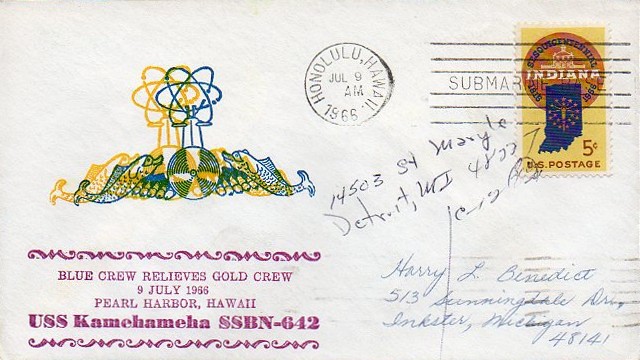 HONOLULU, HAWAII.
JUL 9
AM
1966
SUBMAR
SESQUICENTENNIAL
1816 1966
INDIANA
5¢
U.S. POSTAGE
14503 St Marys
Detroit, MI 48227
BLUE CREW RELIEVES GOLD CREW
9 JULY 1966
PEARL HARBOR, HAWAII
USS Kamehameha SSBN-642
Harry L. Benedict
513 Sunningdale Dr.,
Inkster, Michigan
48141